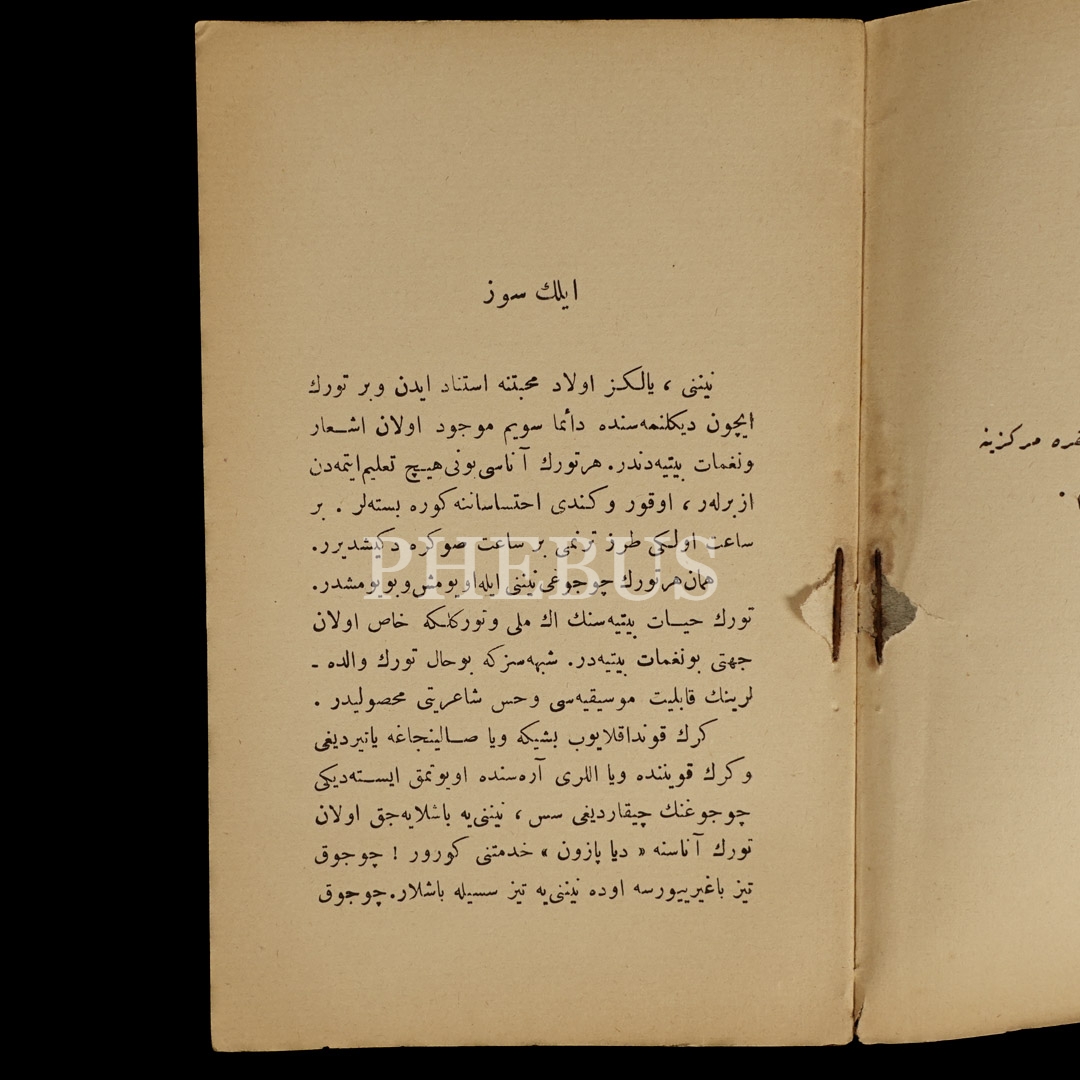 ايلك سوز
نيننى ، يالكـز اولاد محبتنه استناد ايدن وبر تورك
ايچون ديكلنمه‌سنده دأئما سويم موجود اولان اشـعار
ونغمات بيتيه‌دندر. هرتورك آناسى بونى هيـچ تعليم‌ايتمه‌دن
ازبرلەر ، اوقور وكندى احتساساتنه كوره بسته‌لر . بر
ساعت اولـكى طرز ترنمى بر ساعت صوكره دكيشديرر.
همان هرتورك چوجوغى نيننى ايله‌اويومش و بويومشدر.
تورك حيـات بيتيه‌سنك اك ملى وتوركلـكه خاص اولان
جهتى بونغمات بيتيه‌در. شبهه‌سزكه بوحال تورك والده -
لرينك قابليت موسيقيه‌سى وحس شاعريتى محصوليدر .
كرك قونداقلايوب بشيكه ويا صـالينجاغه ياتيرديغى
وكرك قويننده ويا اللرى آره‌سنده اويوتمق ايسـته‌ديكى
چوجوغنك چيقارديغى سس ، نيننى‌يه باشلايه‌جق اولان
تورك آناسنه « ديا پازون » خدمتنى كورور ! چوجوق
تيز باغيرييورسه اوده نيننى‌يه تيز سسيله باشلار. چوجوق
مركزينه
PHEBUS